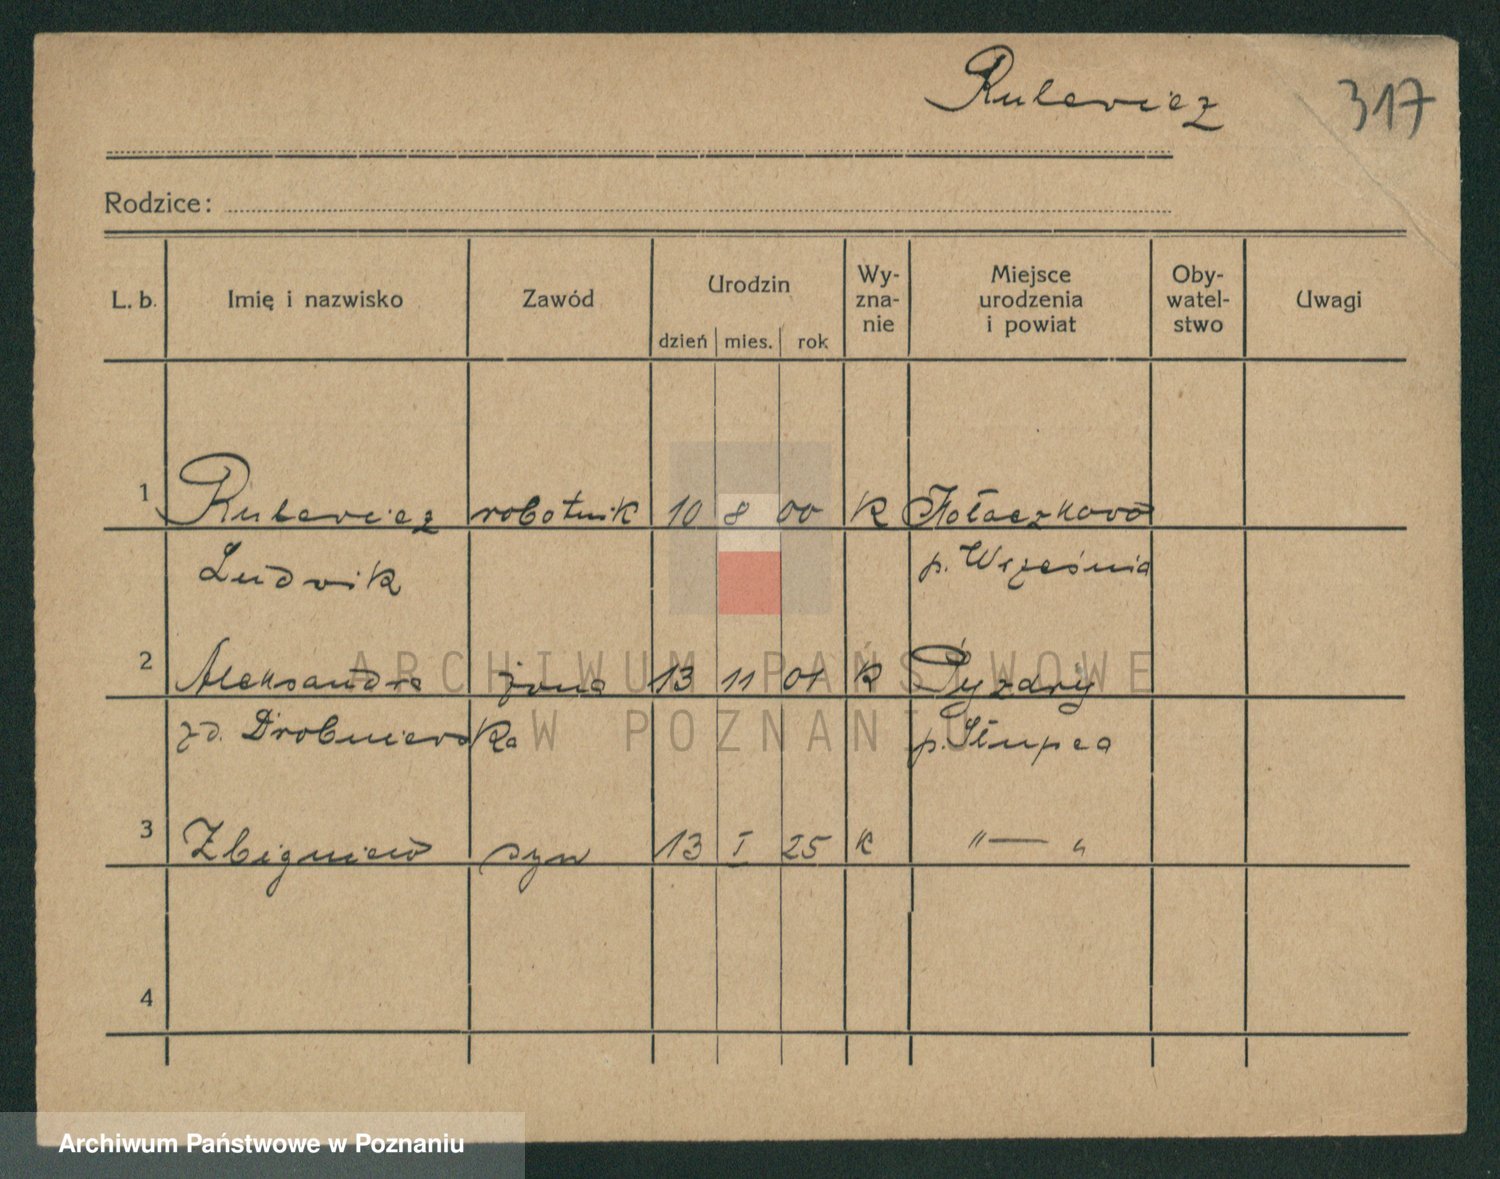 Rulewicz
317
Rodzice:
L. b. Imię i nazwisko Zawód Urodzin dzień mies. rok Wy-zna-nie Miejsce urodzenia i powiat Oby-watel-stwo Uwagi
1 Rulewicz robotnik 10 8 00 K
Ludwik p. Września
2 Aleksandra żona 13 11 01 K Pyzdry
zd. Drobniewska p. Słupca
3 Zbigniew syn 13 I 25 K " — "
4
ARCHIWUM PAŃSTWOWE
W POZNANIU
Archiwum Państwowe w Poznaniu